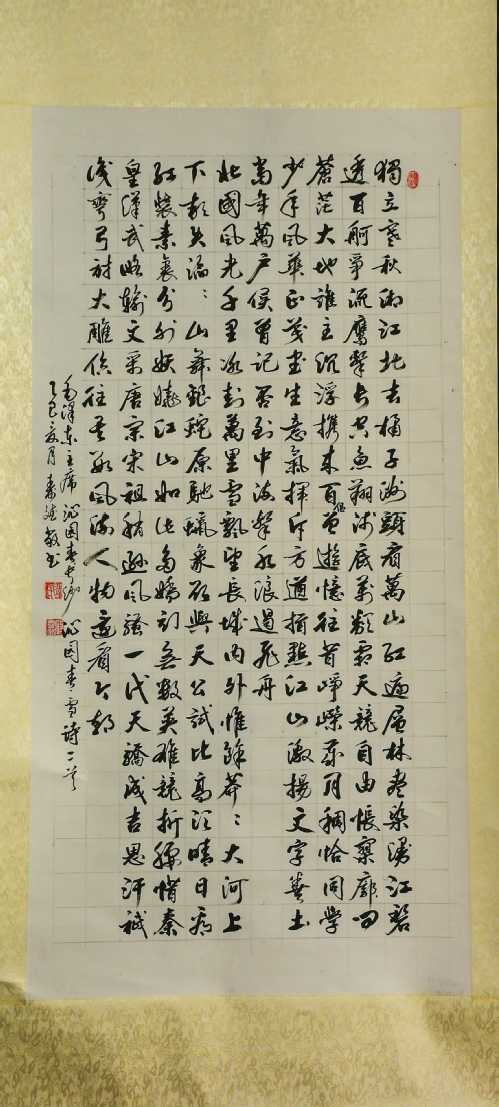 獨立寒秋湘江北去橘子洲頭看萬山紅遍層林盡染漫江碧
透百舸爭流鷹擊長空魚翔淺底萬類霜天競自由悵寥廓问
蒼茫大地誰主沉浮攜來百侶曾遊憶往昔崢嶸歲月稠恰同學
少年風華正茂書生意氣揮斥方遒指點江山激揚文字糞土
當年萬户侯曾記否到中流擊水浪遏飛舟
北國風光千里冰封萬里雪飄望長城内外惟餘莽〻大河上
下頓失滔〻山舞銀蛇原馳蠟象欲與天公試比高須晴日看
紅裝素裹分外妖嬈江山如此多嬌引無數英雄競折腰惜秦
皇漢武略輸文采唐宗宋祖稍遜風騷一代天驕成吉思汗祇
識彎弓射大雕俱往矣數風流人物還看今朝
毛澤東主席沁园春长沙沁园春雪詩二首
乙巳夏月書